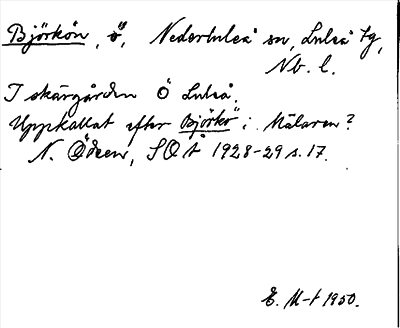 Björkön, ö, Nederluleå sn, Luleå tg,
Nb. l.
I skärgården Ö Luleå.
Uppkallat efter Björkö i Mälaren?
N. Ödeen, SOÅ 1928-29 s. 17.
E. M-t 1950.